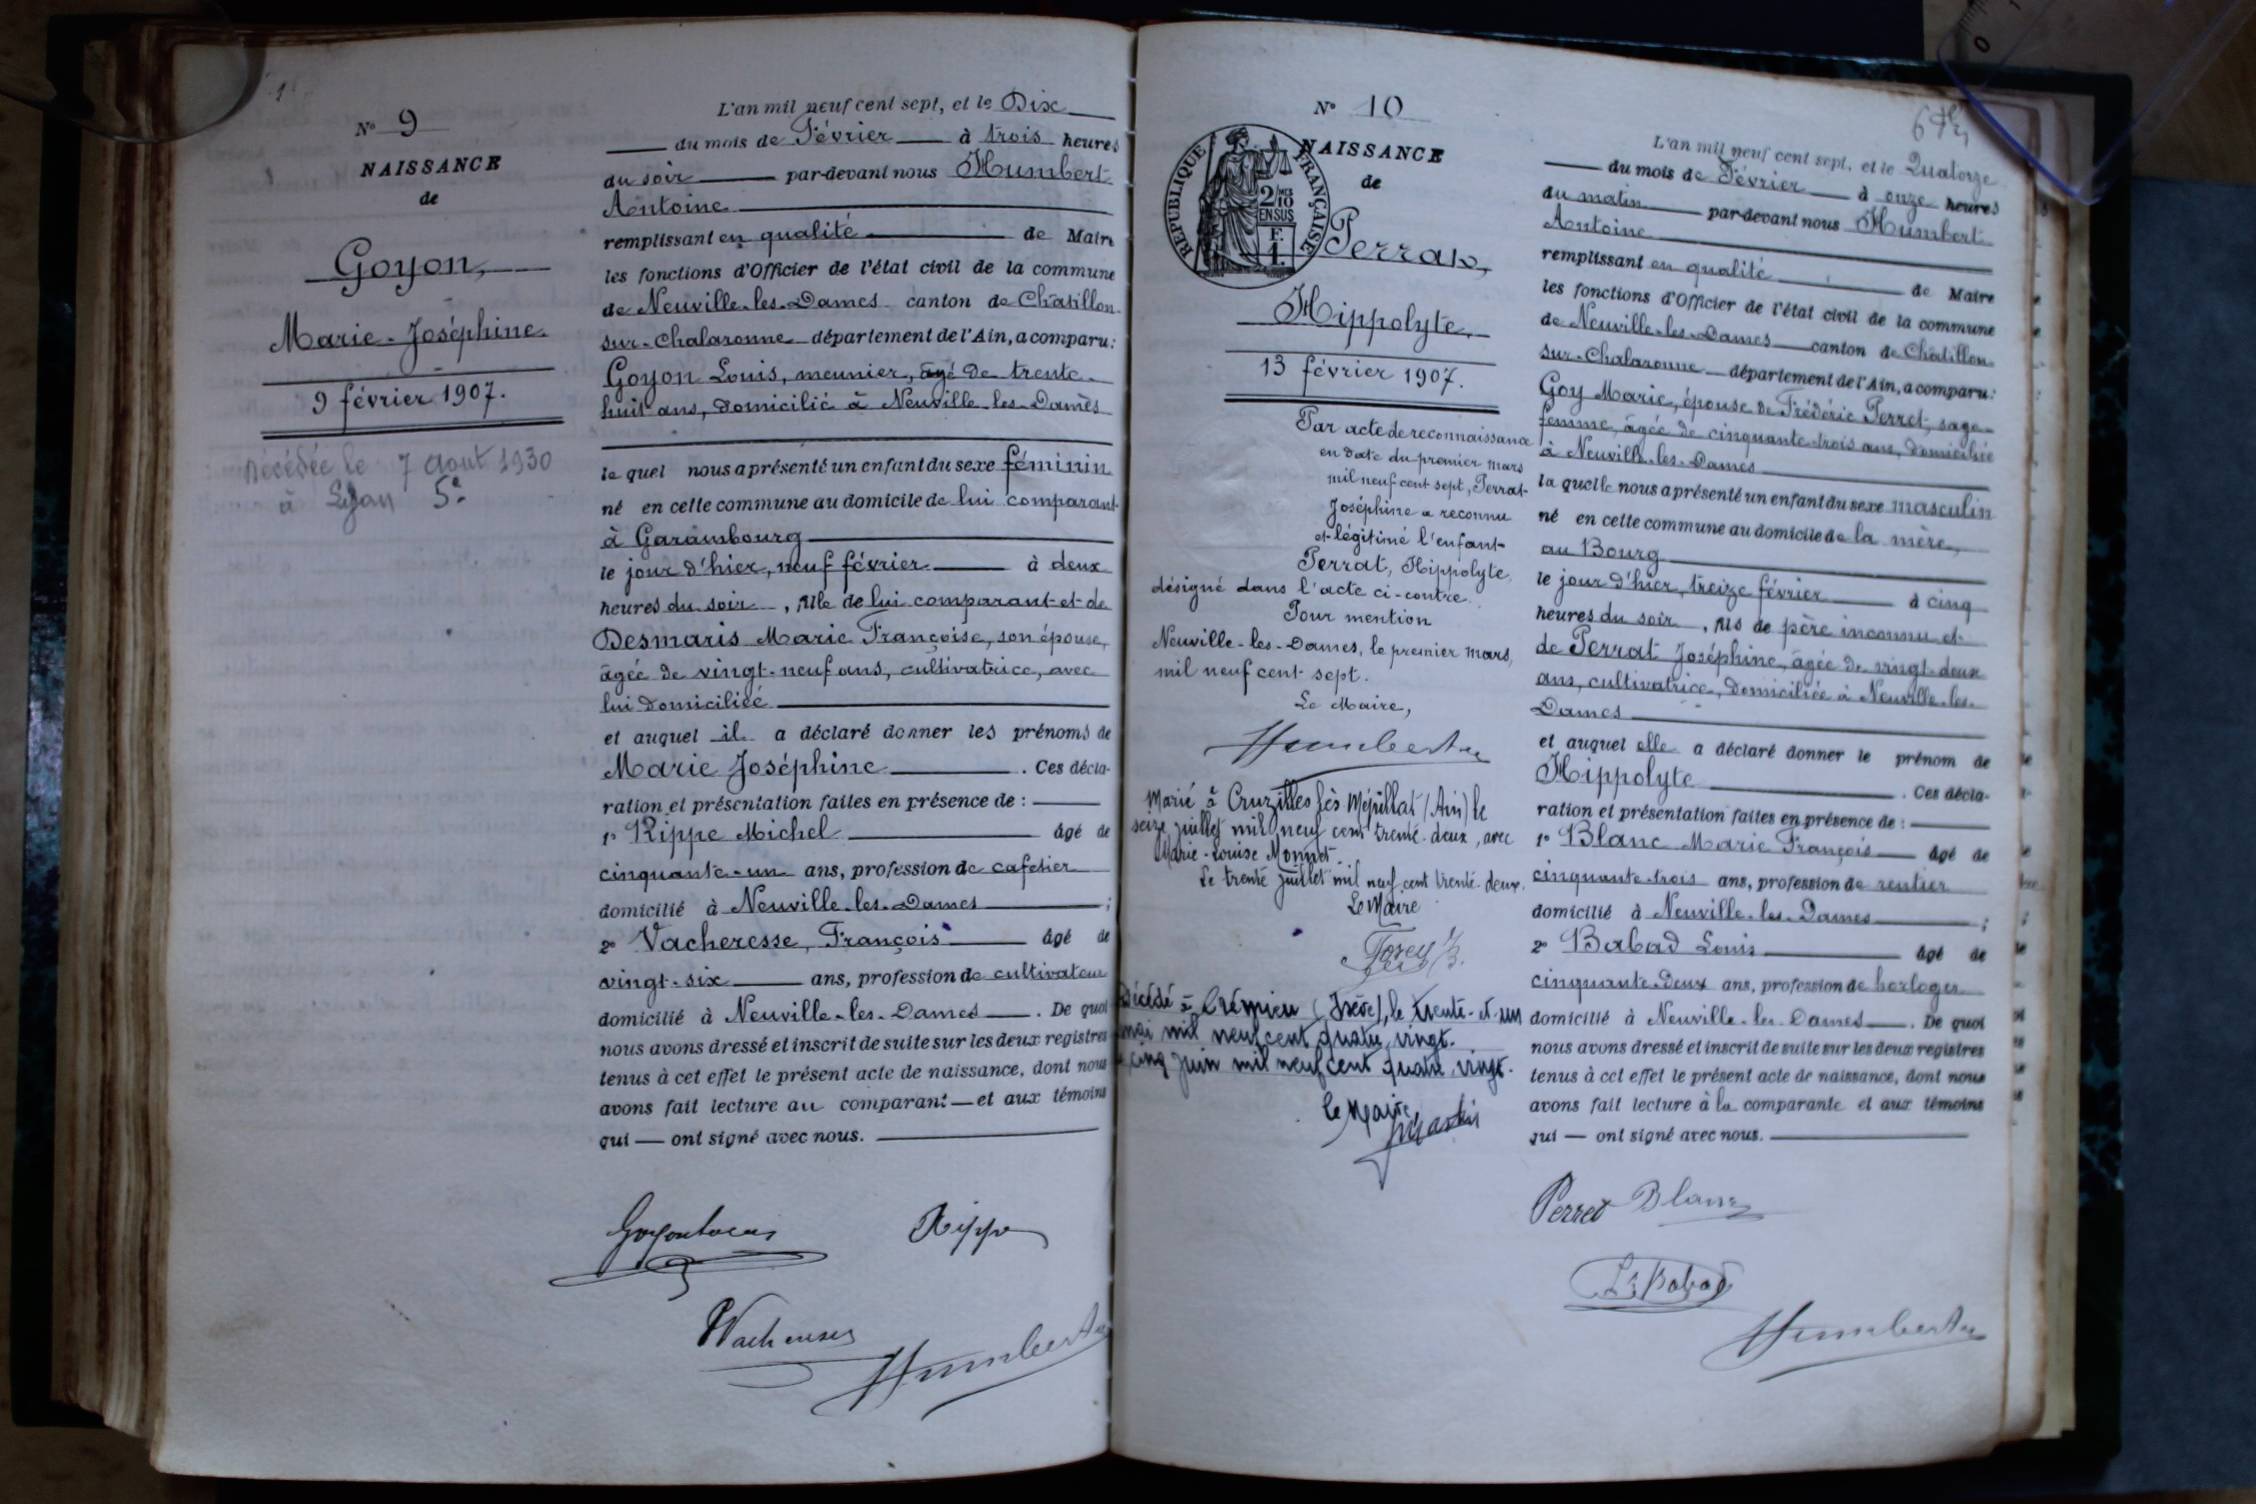 N° 9
NAISSANCE
de
Goyon,
Marie-Joséphine
9 février 1907.
Décédée le 7 aout 1930
à Lyon 5e
L'an mil neuf cent sept, et le Dix
du mois de Février à trois heures
du soir par-devant nous Humbert
Antoine
remplissant en qualité de Maire
les fonctions d'Officier de l'état civil de la commune
de Neuville-les-Dames canton de Châtillon-
sur-Chalaronne département de l'Ain, a comparu:
Goyon Louis, meunier, âgé de trente-
huit ans, domicilié à Neuville-les-Dames
le quel nous a présenté un enfant du sexe féminin
né en cette commune au domicile de lui comparant
à Garambourg
le jour d'hier, neuf février à deux
heures du soir, fille de lui comparant et de
Desmaris Marie Françoise, son épouse,
âgée de vingt-neuf ans, cultivatrice, avec
lui domiciliée
et auquel il a déclaré donner les prénoms de
Marie Joséphine. Ces décla-
ration et présentation faites en présence de :
1° Rippe Michel âgé de
cinquante-un ans, profession de cafetier
domicilié à Neuville-les-Dames ;
2° Vacheresse, François âgé de
vingt-six ans, profession de cultivateur
domicilié à Neuville-les-Dames. De quoi
nous avons dressé et inscrit de suite sur les deux registres
tenus à cet effet le présent acte de naissance, dont nous
avons fait lecture au comparant et aux témoins
qui ont signé avec nous.
Goyon Louis Rippe
Vacheresse
Humbert
N° 10
RÉPUBLIQUE FRANÇAISE
2/10 MES
EN SUS
F.
1.
NAISSANCE
de
Perrat,
Hippolyte,
13 février 1907.
Par acte de reconnaissance
en date du premier mars
mil neuf cent sept, Perrat
Joséphine a reconnu
et légitimé l'enfant
Perrat, Hippolyte,
désigné dans l'acte ci-contre.
Pour mention
Neuville-les-Dames, le premier mars,
mil neuf cent sept.
Le Maire,
Humbert
Marié à Cruzilles lès Mépillat (Ain) le
seize juillet mil neuf cent trente-deux, avec
Marie-Louise Monnet.
Le trente juillet mil neuf cent trente-deux.
Le Maire
Décédé à Crémieu (Isère), le trente-et-un
mai mil neuf cent quatre vingt.
cinq juin mil neuf cent quatre vingt.
le Maire
6
L'an mil neuf cent sept, et le Quatorze
du mois de Février à onze heures
du matin par-devant nous Humbert
Antoine
remplissant en qualité de Maire
les fonctions d'Officier de l'état civil de la commune
de Neuville-les-Dames canton de Châtillon-
sur-Chalaronne département de l'Ain, a comparu:
Goy Marie, épouse de Frédéric Perret, sage-
femme, âgée de cinquante-trois ans, domiciliée
à Neuville-les-Dames
la quelle nous a présenté un enfant du sexe masculin
né en cette commune au domicile de la mère,
au Bourg
le jour d'hier, treize février à cinq
heures du soir, fils de père inconnu et
de Perrat Joséphine, âgée de vingt-deux
ans, cultivatrice, domiciliée à Neuville-les-
Dames
et auquel elle a déclaré donner le prénom de
Hippolyte. Ces décla-
ration et présentation faites en présence de :
1° Blanc Marie François âgé de
cinquante-trois ans, profession de rentier
domicilié à Neuville-les-Dames ;
2° Babad Louis âgé de
cinquante-deux ans, profession de horloger
domicilié à Neuville-les-Dames. De quoi
nous avons dressé et inscrit de suite sur les deux registres
tenus à cet effet le présent acte de naissance, dont nous
avons fait lecture à la comparante et aux témoins
qui ont signé avec nous.
Perret Blanc
Ls Babad
Humbert